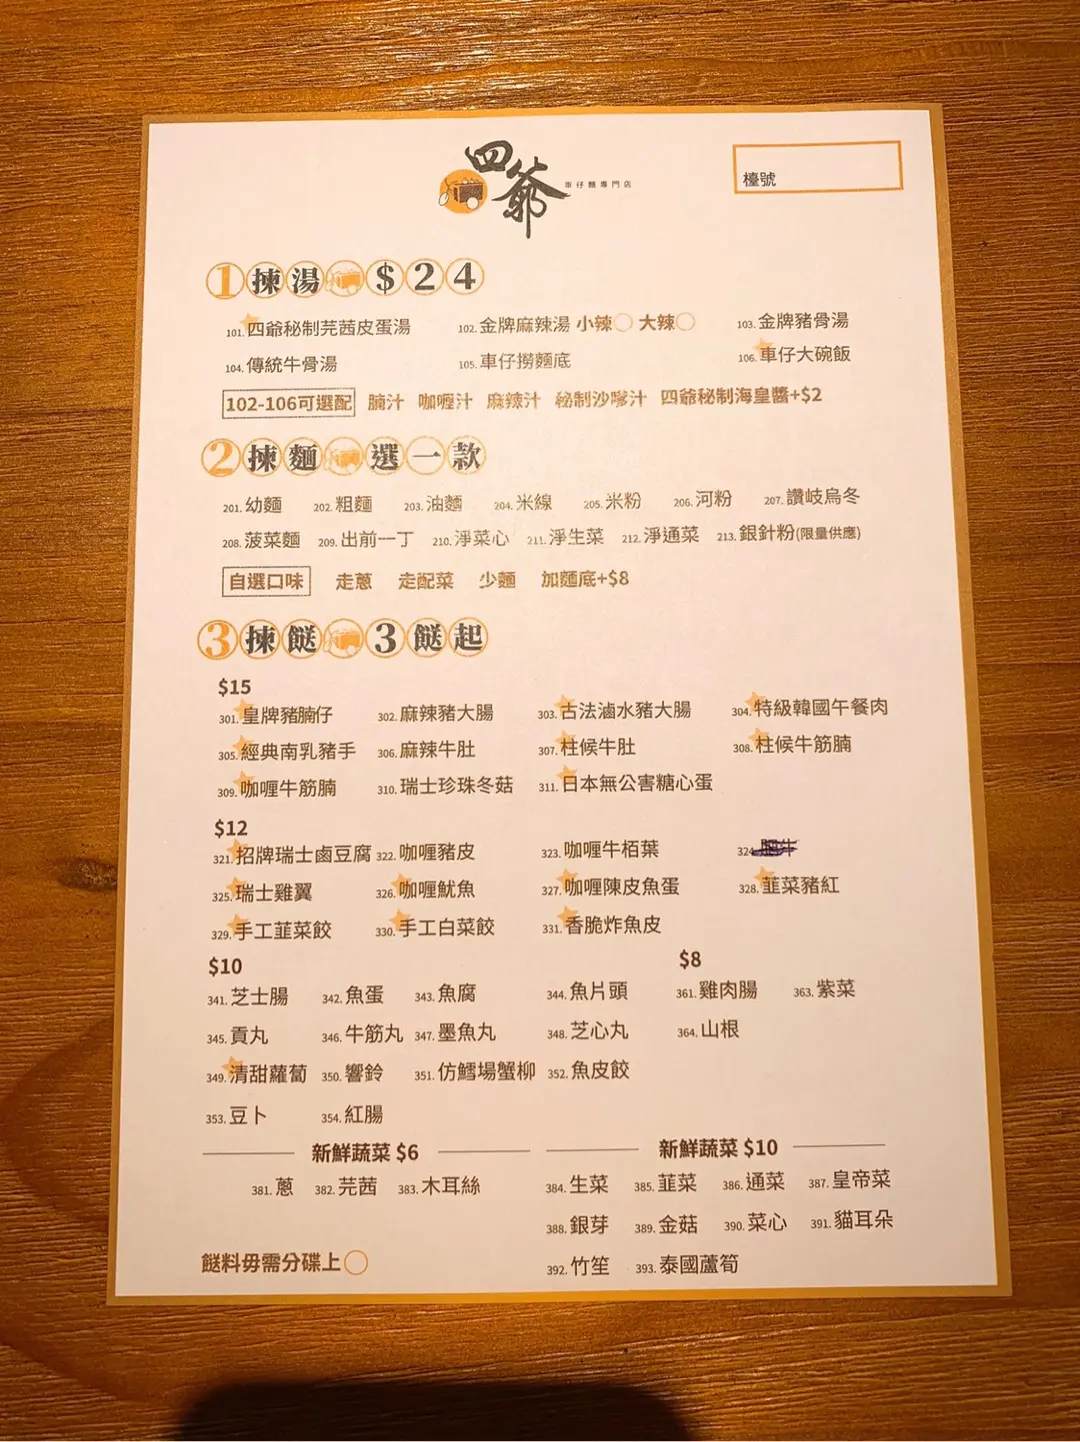 四爺
車仔麵專門店
檯號
1揀湯 $24
101.四爺秘制芫茜皮蛋湯 102.金牌麻辣湯 小辣○ 大辣○ 103.金牌豬骨湯
104.傳統牛骨湯 105.車仔撈麵底 106.車仔大碗飯
102-106可選配 腩汁 咖喱汁 麻辣汁 秘制沙嗲汁 四爺秘制海皇醬+$2
2揀麵 選一款
201.幼麵 202.粗麵 203.油麵 204.米線 205.米粉 206.河粉 207.讚岐烏冬
208.菠菜麵 209.出前一丁 210.淨菜心 211.淨生菜 212.淨通菜 213.銀針粉(限量供應)
自選口味 走蔥 走配菜 少麵 加麵底+$8
3揀餸 3餸起
$15
301.皇牌豬腩仔 302.麻辣豬大腸 303.古法滷水豬大腸 304.特級韓國午餐肉
305.經典南乳豬手 306.麻辣牛肚 307.柱候牛肚 308.柱候牛筋腩
309.咖喱牛筋腩 310.瑞士珍珠冬菇 311.日本無公害糖心蛋
$12
321.招牌瑞士鹵豆腐 322.咖喱豬皮 323.咖喱牛栢葉 324.
325.瑞士雞翼 326.咖喱魷魚 327.咖喱陳皮魚蛋 328.韮菜豬紅
329.手工韮菜餃 330.手工白菜餃 331.香脆炸魚皮
$10 $8
341.芝士腸 342.魚蛋 343.魚腐 344.魚片頭 361.雞肉腸 363.紫菜
345.貢丸 346.牛筋丸 347.墨魚丸 348.芝心丸 364.山根
349.清甜蘿蔔 350.響鈴 351.仿鱈場蟹柳 352.魚皮餃
353.豆卜 354.紅腸
新鮮蔬菜 $6 新鮮蔬菜 $10
381.蔥 382.芫茜 383.木耳絲 384.生菜 385.韮菜 386.通菜 387.皇帝菜
388.銀芽 389.金菇 390.菜心 391.貓耳朵
餸料毋需分碟上○ 392.竹笙 393.泰國蘆筍